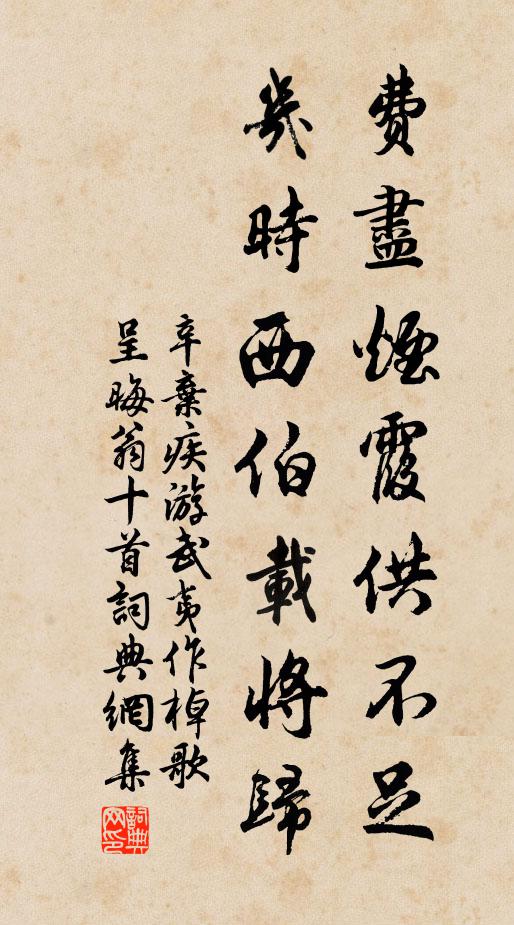 費盡煙霞供不足
幾時西伯載將歸
辛棄疾游武夷作棹歌
呈晦翁十首詞典網集
詞典网印